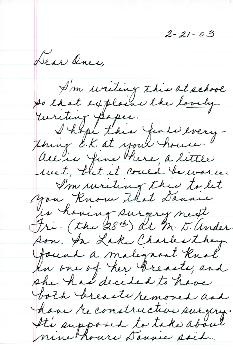 2-21-03
Dear Ones,
I'm writing this at school
so that explains the lovely
writing paper.
I hope this finds every-
thing O.K. at your house.
All is fine here, a little
wet, but it could be worse.
I'm writing this to let
you know that Dannie
is having surgery next
Fri. (the 28th) at M.D. Ander
son. In Lake Charles they
found a malignant knot
in one of her breasts, and
she has decided to have
both breasts removed and
have reconstructive surgery.
It's supposed to take about
nine hours Dannie said.